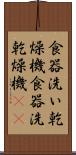 食器洗い乾
燥機食器洗
乾燥機《《